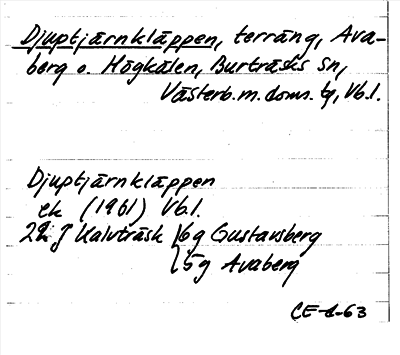 Djuptjärnkläppen, terräng, Ava-
berg o. Högkälen, Burträsks Sn,
Västerb. m. doms. tg, Vb.l.
Djuptjärnkläppen
ek (1961) Vb.l.
22 J Kalvträsk 6g Gustavsberg
5g Avaberg
CE-1-63